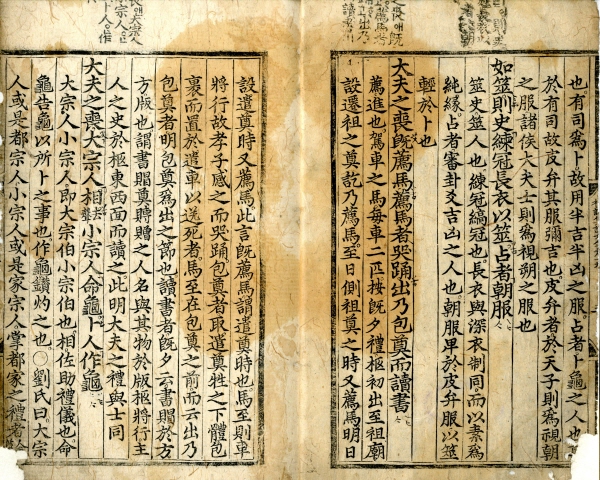 也有司爲卜故用半吉半凶之服占者卜龜之人也
於有司故皮弁其服彌吉也皮弁者於天子則爲視朝
之服諸侯大夫士則爲視朔之服也
如筮則史練冠長衣以筮占者朝服
筮史筮人也練冠縞冠也長衣與深衣制同而以素爲
純緣占者審卦爻吉凶之人也朝服卑於皮弁服以筮
輕於卜也
大夫之喪旣薦馬薦馬者哭踊出乃包奠而讀書
薦進也駕車之馬每車二匹按旣夕禮柩初出至祖廟
設遷祖之奠訖乃薦馬至日側祖奠之時又薦馬明日
設遣奠時又薦馬此言旣薦馬謂遣奠時也馬至則車
將行故孝子感之而哭踊包奠者取遣奠牲之下體包
裹而置於遣車以送死者馬至在包奠之前而云出乃
包奠者明包奠爲出之節也讀書者旣夕云書賵於方
方版也謂書賵奠賻贈之人名與其物於版柩將行主
人之史於柩東西面而讀之此明大夫之禮與士同
大夫之喪大宗人相小宗人命龜卜人作龜
大宗人小宗人即大宗伯小宗伯也相佐助禮儀也命
龜告龜以所卜之事也作龜鑽灼之也○劉氏曰大宗
人或是都宗人小宗人或是家宗人掌都家之禮者